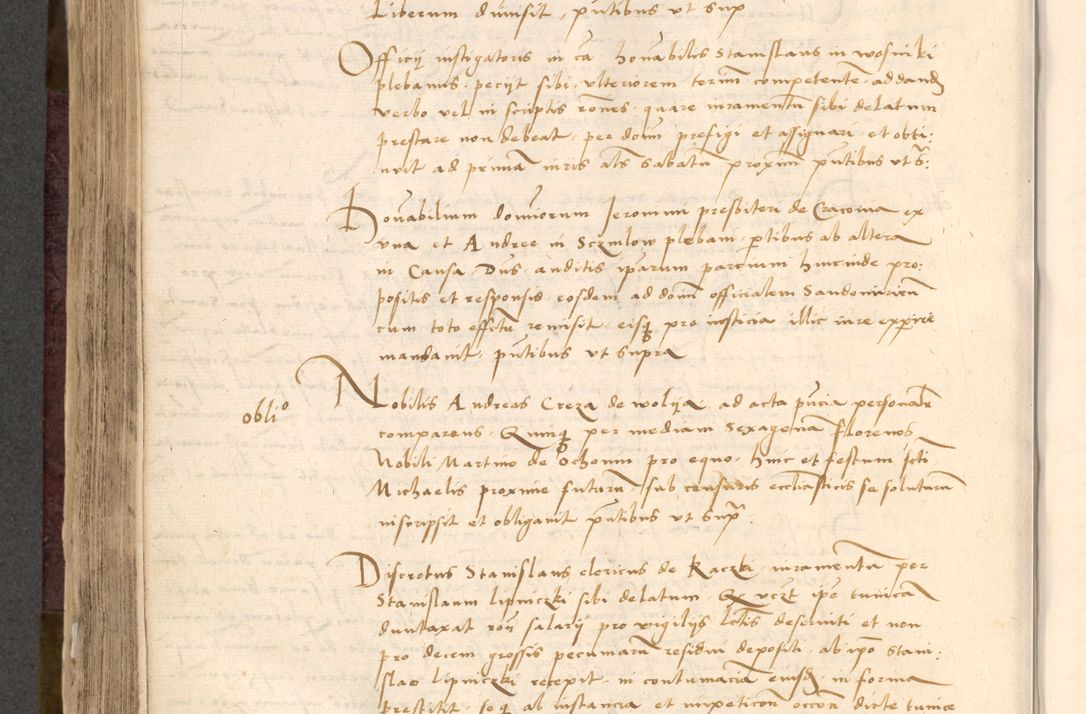 Liberum dimisit, pntibus ut sup
Officij instigatoris in ca honabilis Stanislaus in wosniki
plebanus, pecijt sibi ulteriorem termi competente, ad dand
verbo vel in scriptis rones, quare iuramentu sibi delatum
prestare non debeat, per dom prefigi et assignari, et obti:
nuit ad prima iuris als sabatu proxim pntibus ut s:
Honabilium dominorum Ieronimi presbiteri de Cracovia ex
una et Andree in Sczmlow plebani, ptibus ab altera
in Causa, Dns, auditis iparum parcium hincinde pro:
positis et responsis, eosdem ad dom officialem Sandomirien
cum toto effctu remisit, eisq pro iusticia illic iure experire
mandauit, pntibus ut supra
oblio
Nobilis Andreas Creza de wolija, ad acta pncia personalr
comparens, Quinq per mediam Sexagena florenos
Nobili Martino de Ochonin pro equo, hinc et festum scti
Michaelis proxime futuru, sub censuris ecclasticis se soluturu
inscripsit et obligauit pntibus ut sup
Discretus Stanislaus, clericus de Raczki, iuramentu per
Stanislaum lipniczki sibi delatum, Q vczt ipe tunica
duntaxat ron salarij pro vigilijs lctis deseruiti et non
pro decem grossis pecuniaru residui depositi, ab ipo Stani:
slao lipniczki recepit, in contumacia eiusd, in forma
prestitit, seq ab instancia et impeticon occon dicte tunice